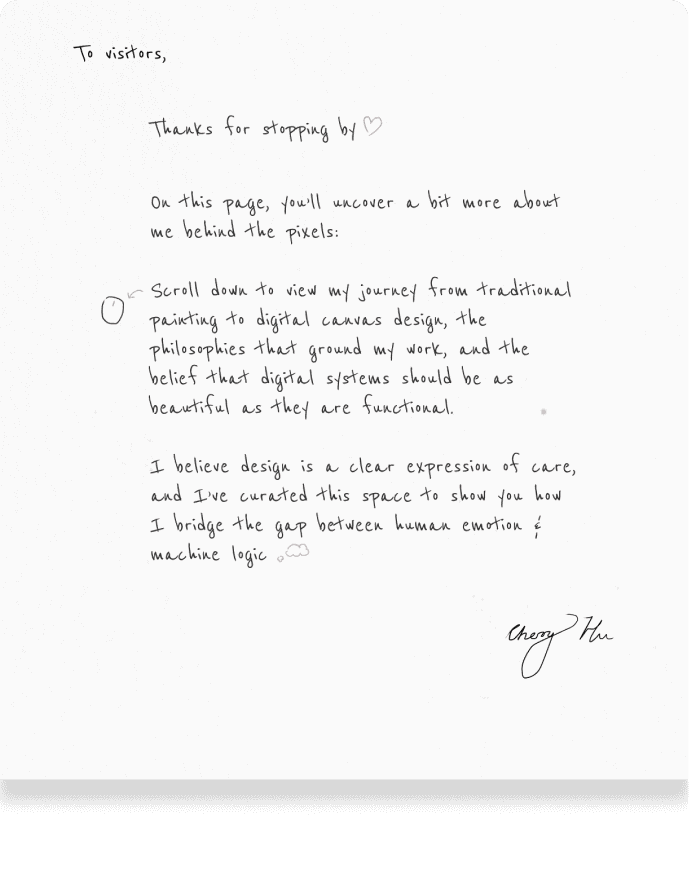 To visitors,
Thanks for stopping by ♡
On this page, you'll uncover a bit more about
me behind the pixels:
Scroll down to view my journey from traditional
painting to digital canvas design, the
philosophies that ground my work, and the
belief that digital systems should be as
beautiful as they are functional.
I believe design is a clear expression of care,
and I've curated this space to show you how
I bridge the gap between human emotion &
machine logic
Hu